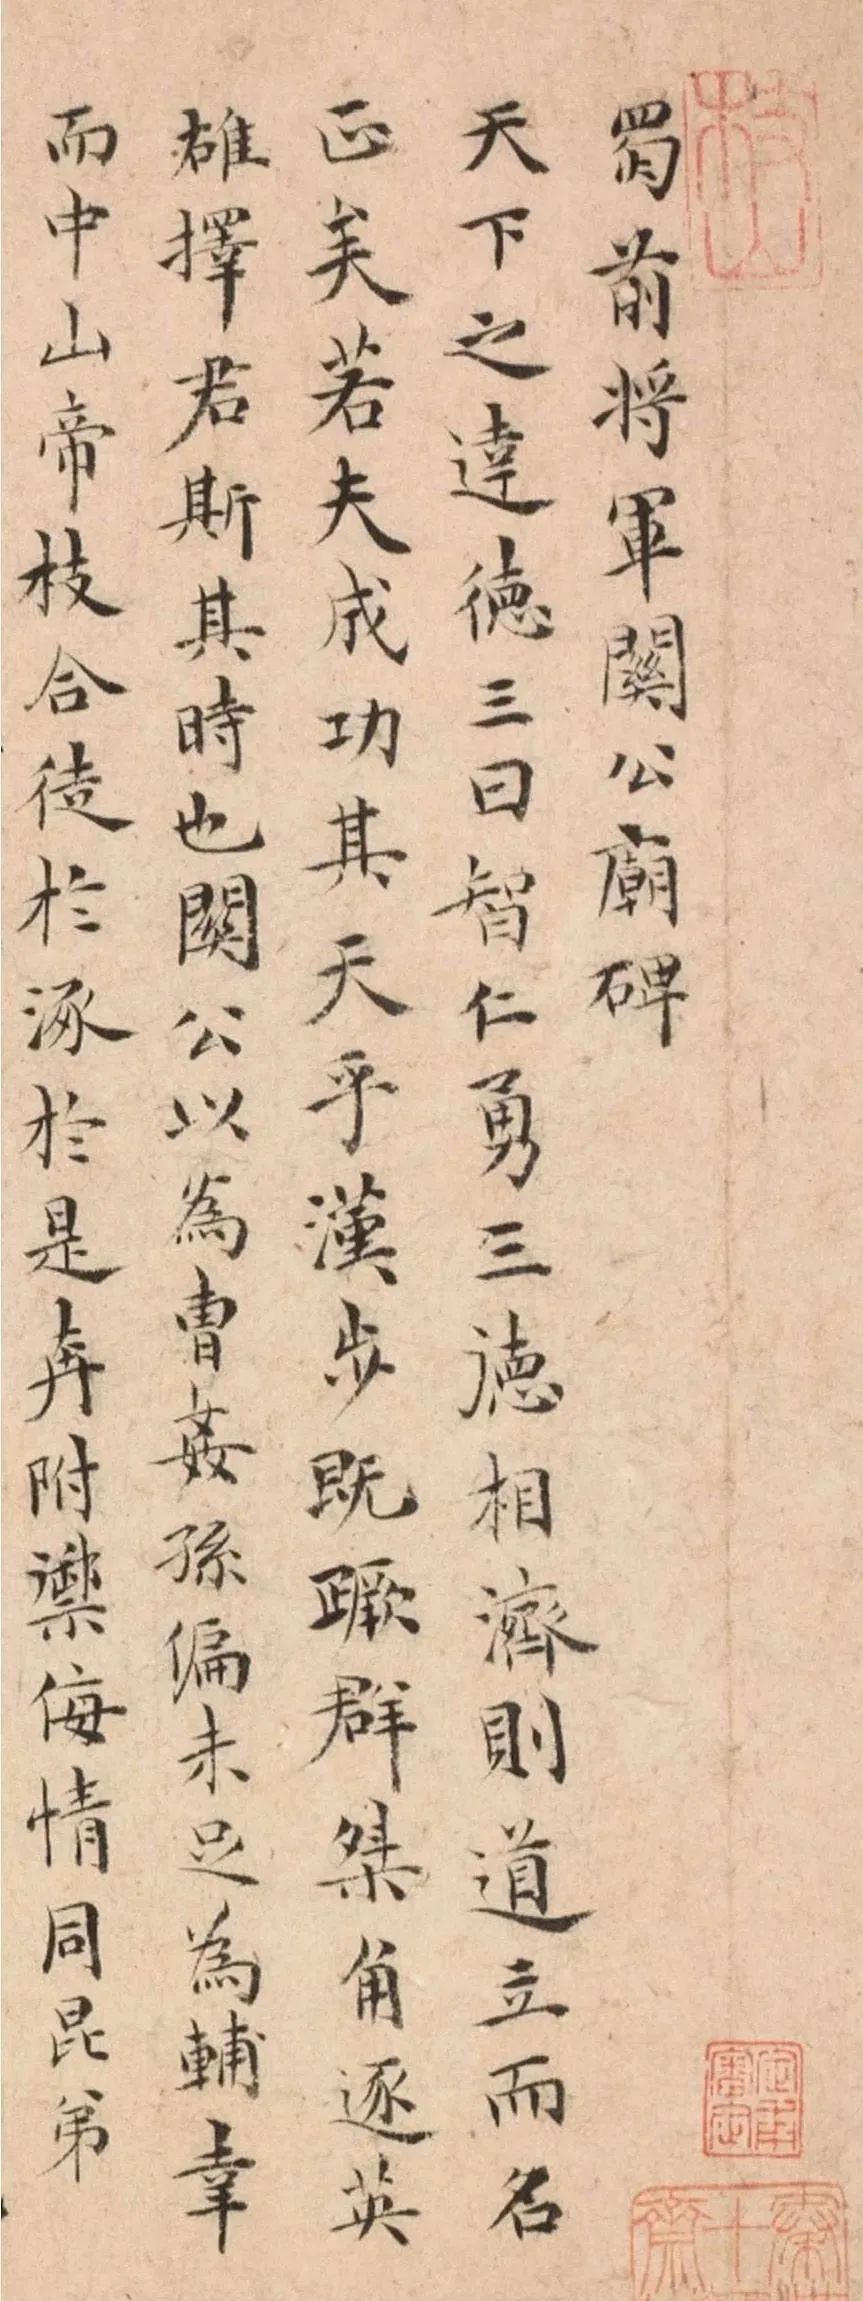 枝山
蜀前将軍關公廟碑
天下之達德三曰智仁勇三德相濟則道立而名
正矣若夫成功其天乎漢步既蹶群桀角逐英
雄擇君斯其時也關公以為曹姦孫偏未足為輔幸
而中山帝枝合徒於涿於是奔附禦侮情同昆弟
定甫審定